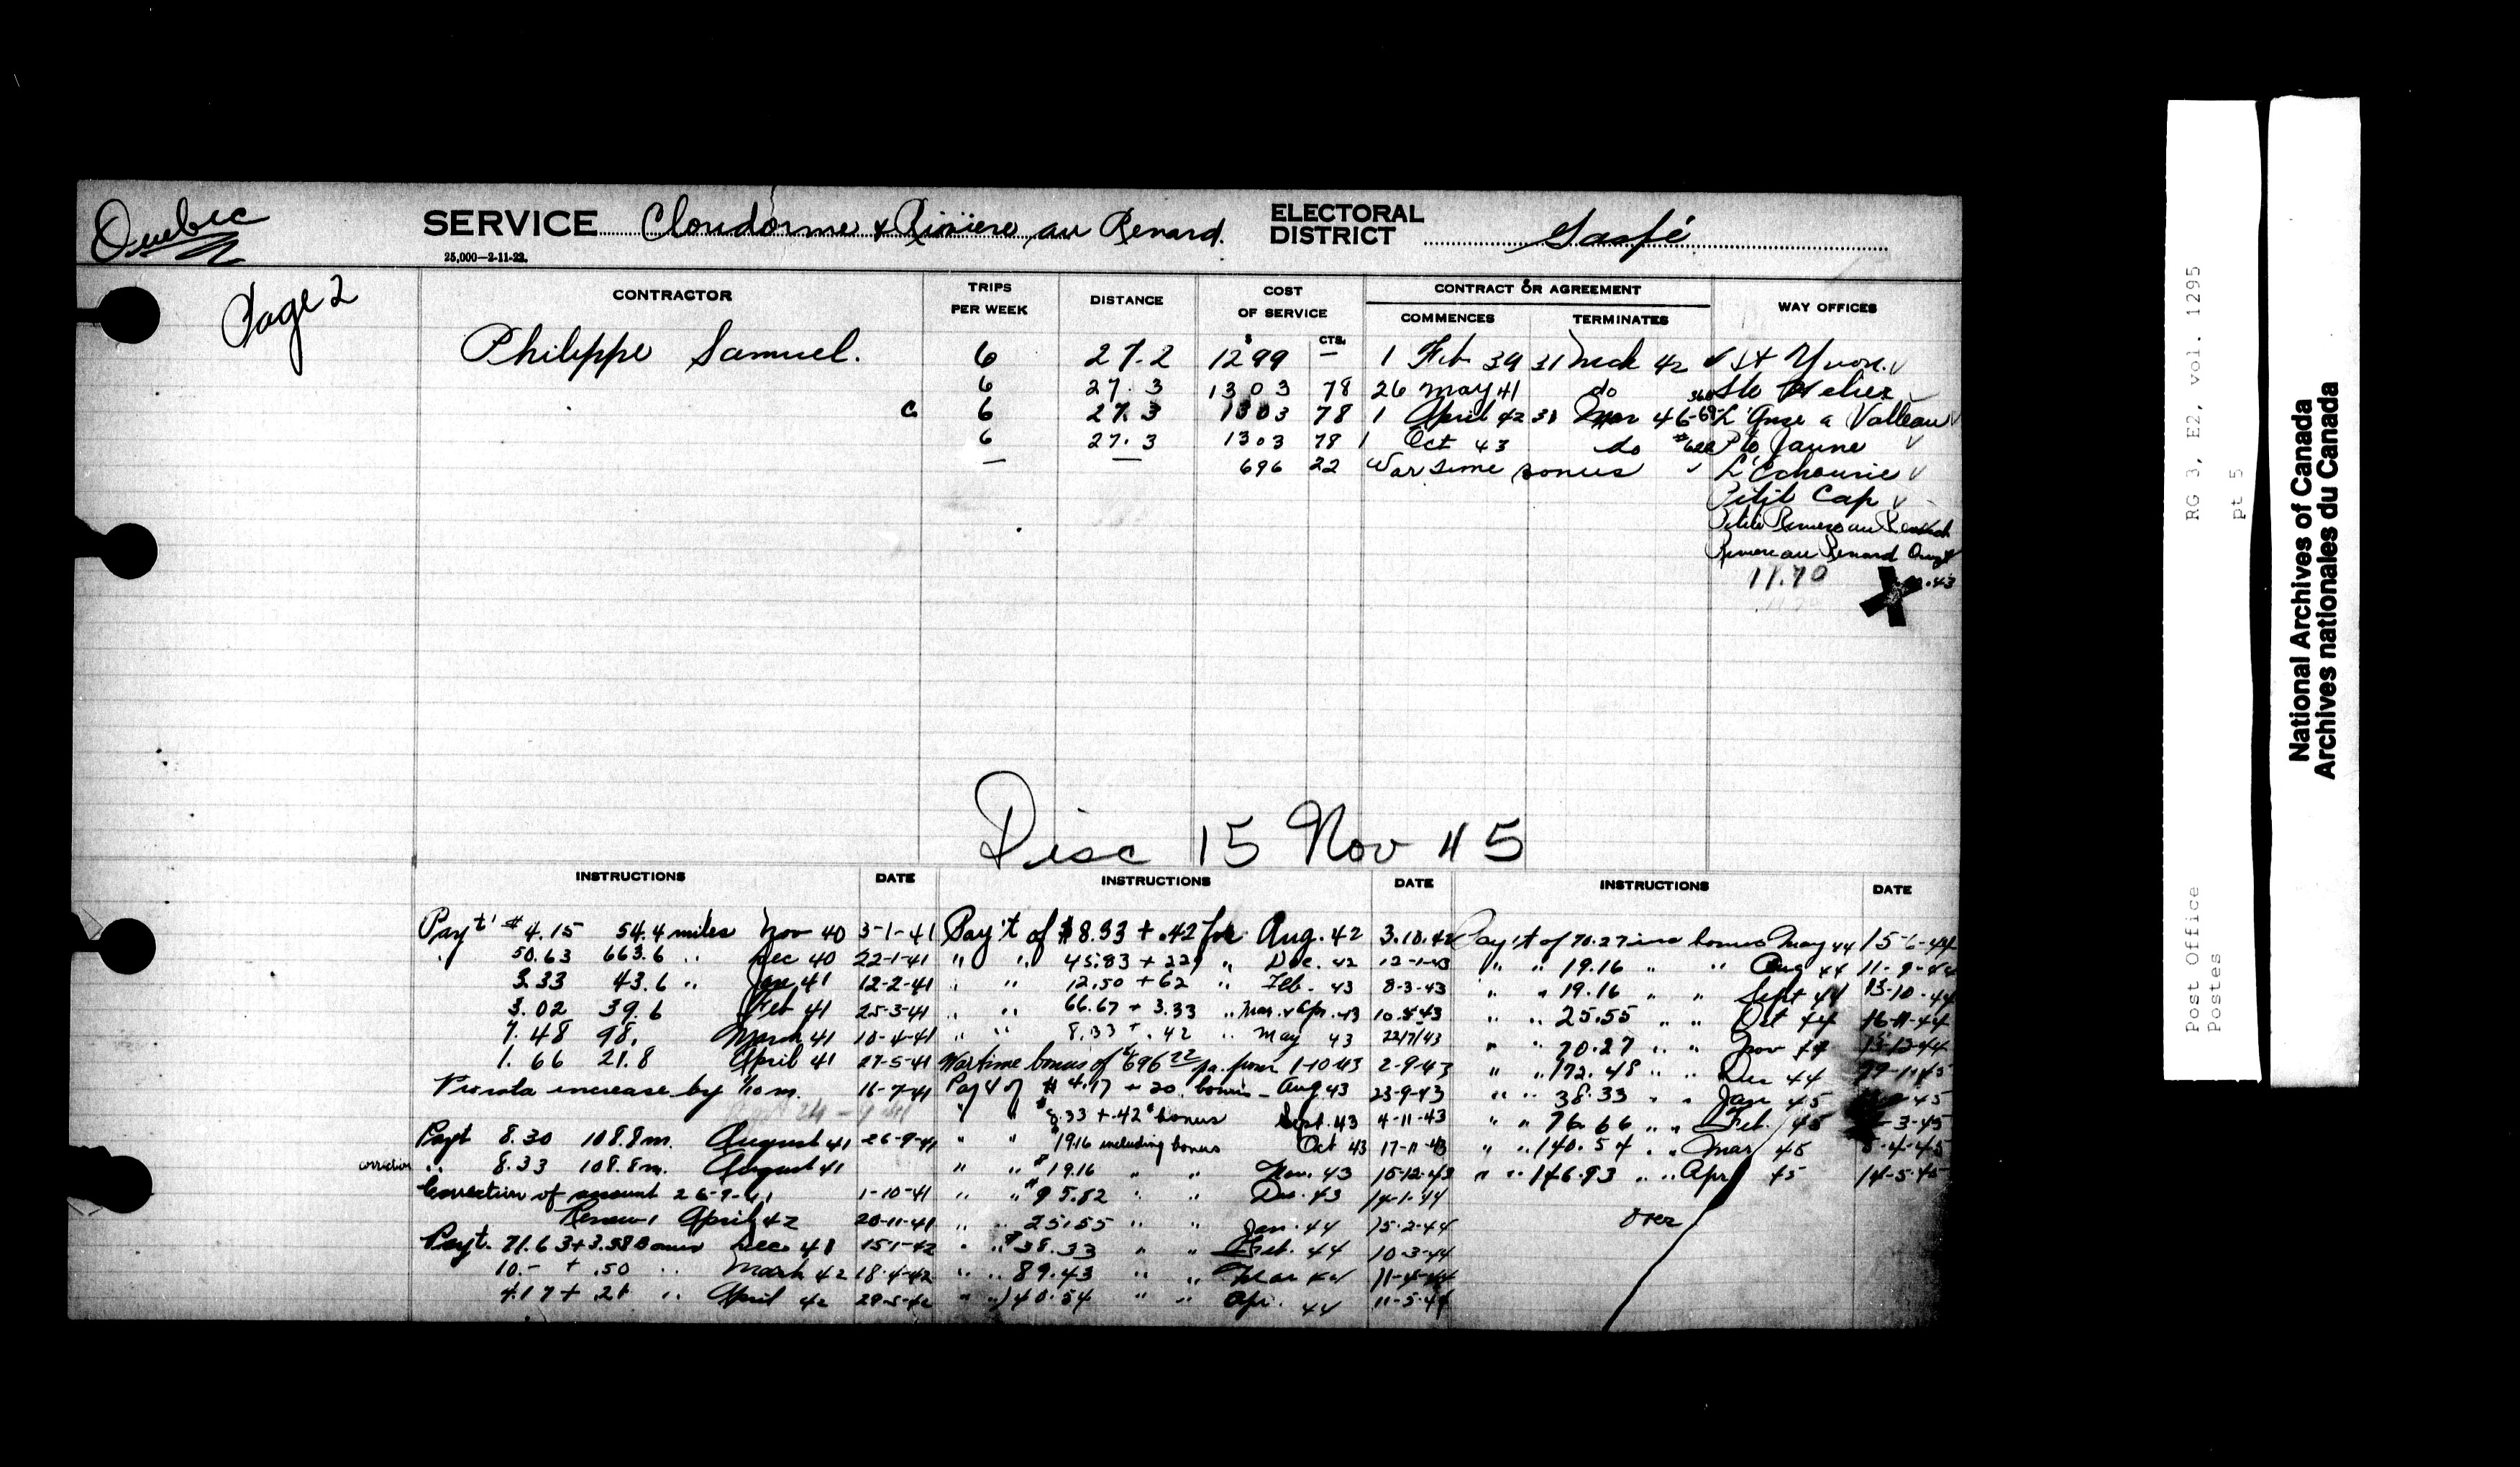 Quebec
SERVICE Cloridorme & Rivière au Renard.
ELECTORAL DISTRICT Gaspé
25,000—2-11-22.
Page 2
CONTRACTOR
TRIPS PER WEEK
DISTANCE
COST OF SERVICE
$ CTS.
CONTRACT OR AGREEMENT
COMMENCES
TERMINATES
WAY OFFICES
Philippe Samuel. 6 27.2 1299 — 1 Feb 39 31 Mch 42 St Yvon.
6 27.3 1303 78 26 May 41 do Ste Helier
C 6 27.3 1303 78 1 April 42 31 Mar 46 L'Anse a Valleau
6 27.3 1303 78 1 Oct 43 do Pte Jaune
— — 696 22 War time bonus L'Echourie
Petit Cap
Petite Riviere au Renard
Riviere au Renard
11.70
Disc 15 Nov 45
INSTRUCTIONS DATE
Payt $4.15 54.4 miles Nov 40 3-1-41
" 50.63 663.6 " Dec 40 22-1-41
3.33 43.6 " Jan 41 12-2-41
3.02 39.6 Feb 41 25-3-41
7.48 98. March 41 18-4-41
1.66 21.8 April 41 27-5-41
Prorata increase by 1/10 m. 16-7-41
Payt 8.30 108.8 m. August 41 26-9-41
correction " 8.33 108.8 m. August 41
Correction of amount 26-9-41 1-10-41
Renew 1 April 42 20-11-41
Payt. 71.63 + 3.58 Bonus Dec 41 15-1-42
10.- + .50 " March 42 18-4-42
4.17 + .21 " April 42 29-5-42
INSTRUCTIONS DATE
Pay't of $8.33 + .42 for Aug. 42 3.10.42
" " 45.83 + 229 " Dec. 42 12-1-43
" " 12.50 + 62 " Feb. 43 8-3-43
" " 66.67 + 3.33 " Mar. & Apr. 43
" " 8.33 + .42 " May 43 22/7/43
Wartime bonus of $696 22 pa. from 1-10-43 2-9-43
Pay't of $4.17 + 20 bonus - Aug 43 23-9-43
" " $8.33 + .42 bonus Sept. 43 4-11-43
" " $19.16 including bonus Oct 43 17-11-43
" " $19.16 " " Nov. 43 15-12-43
" " $95.82 " " Dec. 43 14-1-44
" " 25.55 " " Jan. 44 15-2-44
" " $38.33 " " Feb. 44 10-3-44
" " 89.43 " " Mar 44 11-4-44
" " 140.54 " " Apr. 44 11-5-44
INSTRUCTIONS DATE
Pay't of 70.27 inc bonus May 44 15-6-44
" " 19.16 " " Aug 44 11-9-44
" " 19.16 " " Sept 44 13-10-44
" " 25.55 " " Oct 44 16-11-44
" " 70.27 " " Nov 44
" " 172.48 " " Dec 44
" " 38.33 " " Jan 45
" " 76.66 " " Feb. 45
" " 140.54 " " Mar 45
" " 146.93 " " Apr 45 14-5-45
over
Post Office RG 3, E2, vol. 1295
Postes pt 5
National Archives of Canada
Archives nationales du Canada